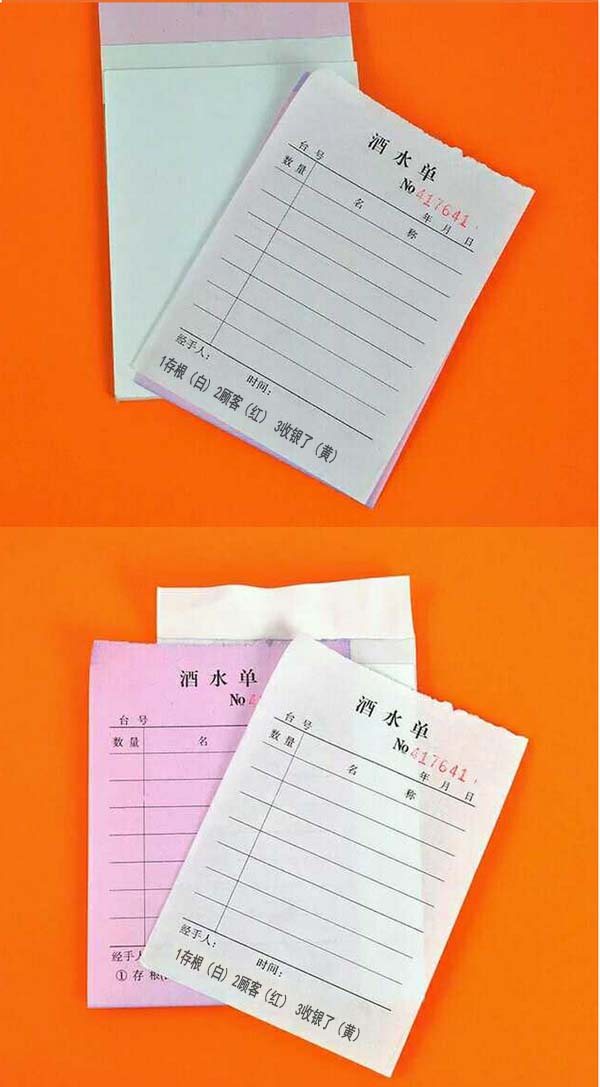 酒水单
No 417641
台号 年 月 日
数量 名 称
经手人： 时间：
1存根（白）2顾客（红） 3收银了（黄）
酒水单
No
台号
数量 名
经手
①存根
酒水单
No 417641
台号 年 月 日
数量 名 称
经手人： 时间：
1存根（白）2顾客（红） 3收银了（黄）